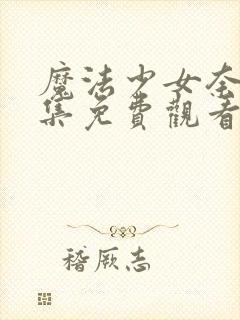 魔法少女奈
集免費觀看
稽厥志